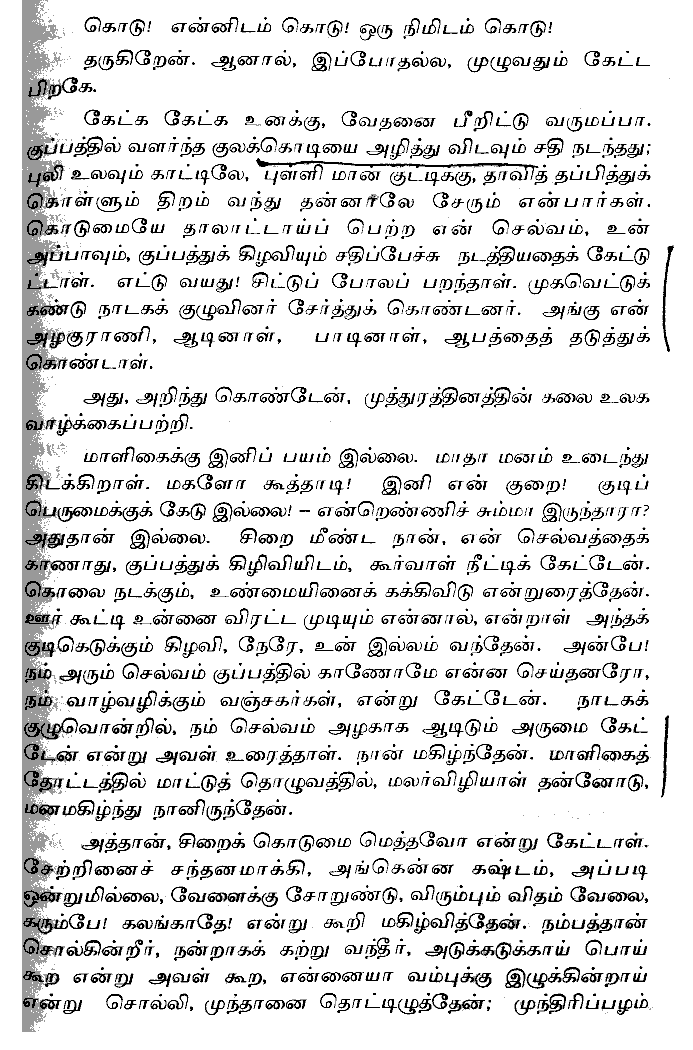 கொடு! என்னிடம் கொடு! ஒரு நிமிடம் கொடு!
தருகிறேன். ஆனால், இப்போதல்ல, முழுவதும் கேட்ட
பிறகே.
கேட்க கேட்க உனக்கு, வேதனை பீறிட்டு வருமப்பா.
குப்பத்தில் வளர்ந்த குலக்கொடியை அழித்து விடவும் சதி நடந்தது;
புலி உலவும் காட்டிலே, புள்ளி மான் குட்டிக்கு, தாவித் தப்பித்துக்
கொள்ளும் திறம் வந்து தன்னாலே சேரும் என்பார்கள்.
கொடுமையே தாலாட்டாய்ப் பெற்ற என் செல்வம், உன்
அப்பாவும், குப்பத்துக் கிழவியும் சதிப்பேச்சு நடத்தியதைக் கேட்டு
ட்டாள். எட்டு வயது! சிட்டுப் போலப் பறந்தாள். முகவெட்டுக்
கண்டு நாடகக் குழுவினர் சேர்த்துக் கொண்டனர். அங்கு என்
அழகுராணி, ஆடினாள், பாடினாள், ஆபத்தைத் தடுத்துக்
கொண்டாள்.
அது, அறிந்து கொண்டேன், முத்துரத்தினத்தின் கலை உலக
வாழ்க்கைப்பற்றி.
மாளிகைக்கு இனிப் பயம் இல்லை. மாதா மனம் உடைந்து
கிடக்கிறாள். மகளோ கூத்தாடி! இனி என் குறை! குடிப்
பெருமைக்குக் கேடு இல்லை! – என்றெண்ணிச் சும்மா இருந்தாரா?
அதுதான் இல்லை. சிறை மீண்ட நான், என் செல்வத்தைக்
காணாது, குப்பத்துக் கிழிவியிடம், கூர்வாள் நீட்டிக் கேட்டேன்.
கொலை நடக்கும், உண்மையினைக் கக்கிவிடு என்றுரைத்தேன்.
ஊர் கூட்டி உன்னை விரட்ட முடியும் என்னால், என்றாள் அந்தக்
குடிகெடுக்கும் கிழவி, நேரே, உன் இல்லம் வந்தேன். அன்பே!
நம் அரும் செல்வம் குப்பத்தில் காணோமே என்ன செய்தனரோ,
நம் வாழ்வழிக்கும் வஞ்சகர்கள், என்று கேட்டேன். நாடகக்
குழுவொன்றில், நம் செல்வம் அழகாக ஆடிடும் அருமை கேட்
டேன் என்று அவள் உரைத்தாள். நான் மகிழ்ந்தேன். மாளிகைத்
தோட்டத்தில் மாட்டுத் தொழுவத்தில், மலர்விழியாள் தன்னோடு,
மனமகிழ்ந்து நானிருந்தேன்.
அத்தான், சிறைக் கொடுமை மெத்தவோ என்று கேட்டாள்.
சேற்றினைச் சந்தனமாக்கி, அங்கென்ன கஷ்டம், அப்படி
ஒன்றுமில்லை, வேளைக்கு சோறுண்டு, விரும்பும் விதம் வேலை,
கரும்பே! கலங்காதே! என்று கூறி மகிழ்வித்தேன். நம்பத்தான்
சொல்கின்றீர், நன்றாகக் கற்று வந்தீர், அடுக்கடுக்காய் பொய்
கூற என்று அவள் கூற, என்னையா வம்புக்கு இழுக்கின்றாய்
என்று சொல்லி, முந்தானை தொட்டிழுத்தேன்; முந்திரிப்பழம்